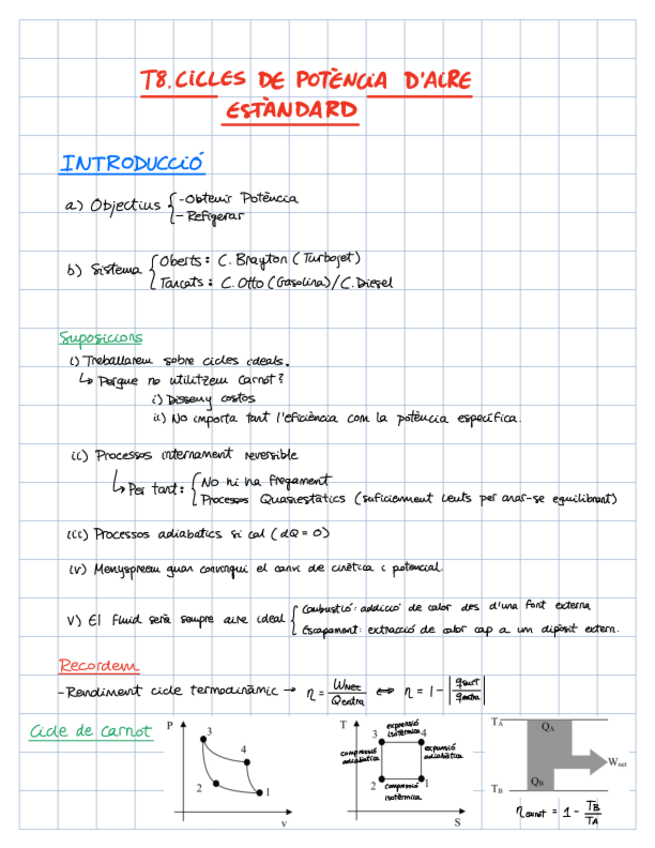 T8. CICLES DE POTÈNCIA D'AIRE
ESTÀNDARD
INTRODUCCIÓ
a) Objectius { - Obtenir Potència
- Refigerar
b) Sistema { Oberts: C. Brayton (Turbojet)
Tancats: C. Otto (Gasolina)/C. Diesel
Suposicions
i) Treballarem sobre cicles ideals.
↳ Perque no utilitzem Carnot?
i) Disseny costos
ii) No importa tant l'eficiència com la potència específica.
ii) Processos internament reversible
↳ Per tant: { No hi ha fregament
Processos Quasiestàtics (suficienment lents per anar-se equilibrant)
iii) Processos adiabatics si cal (dQ = 0)
iv) Menyspreem quan convingui el canvi de cinètica i potencial.
v) El fluid serà sempre aire ideal { Combustió: addicció de calor des d'una font externa
Escapament: extracció de calor cap a un dipòsit extern.
Recordem
- Rendiment cicle termodinàmic → η = Wnet / Qentra ⇔ η = 1 - |qsurt / qentra|
Cicle de Carnot
P
3
4
2
1
v
T
expansió
isotèrmica
3
4
compressió
adiabàtica
expansió
adiabàtica
2
1
compressió
isotèrmica
S
TA
QA
Wnet
TB
QB
ηcarnot = 1 - TB / TA